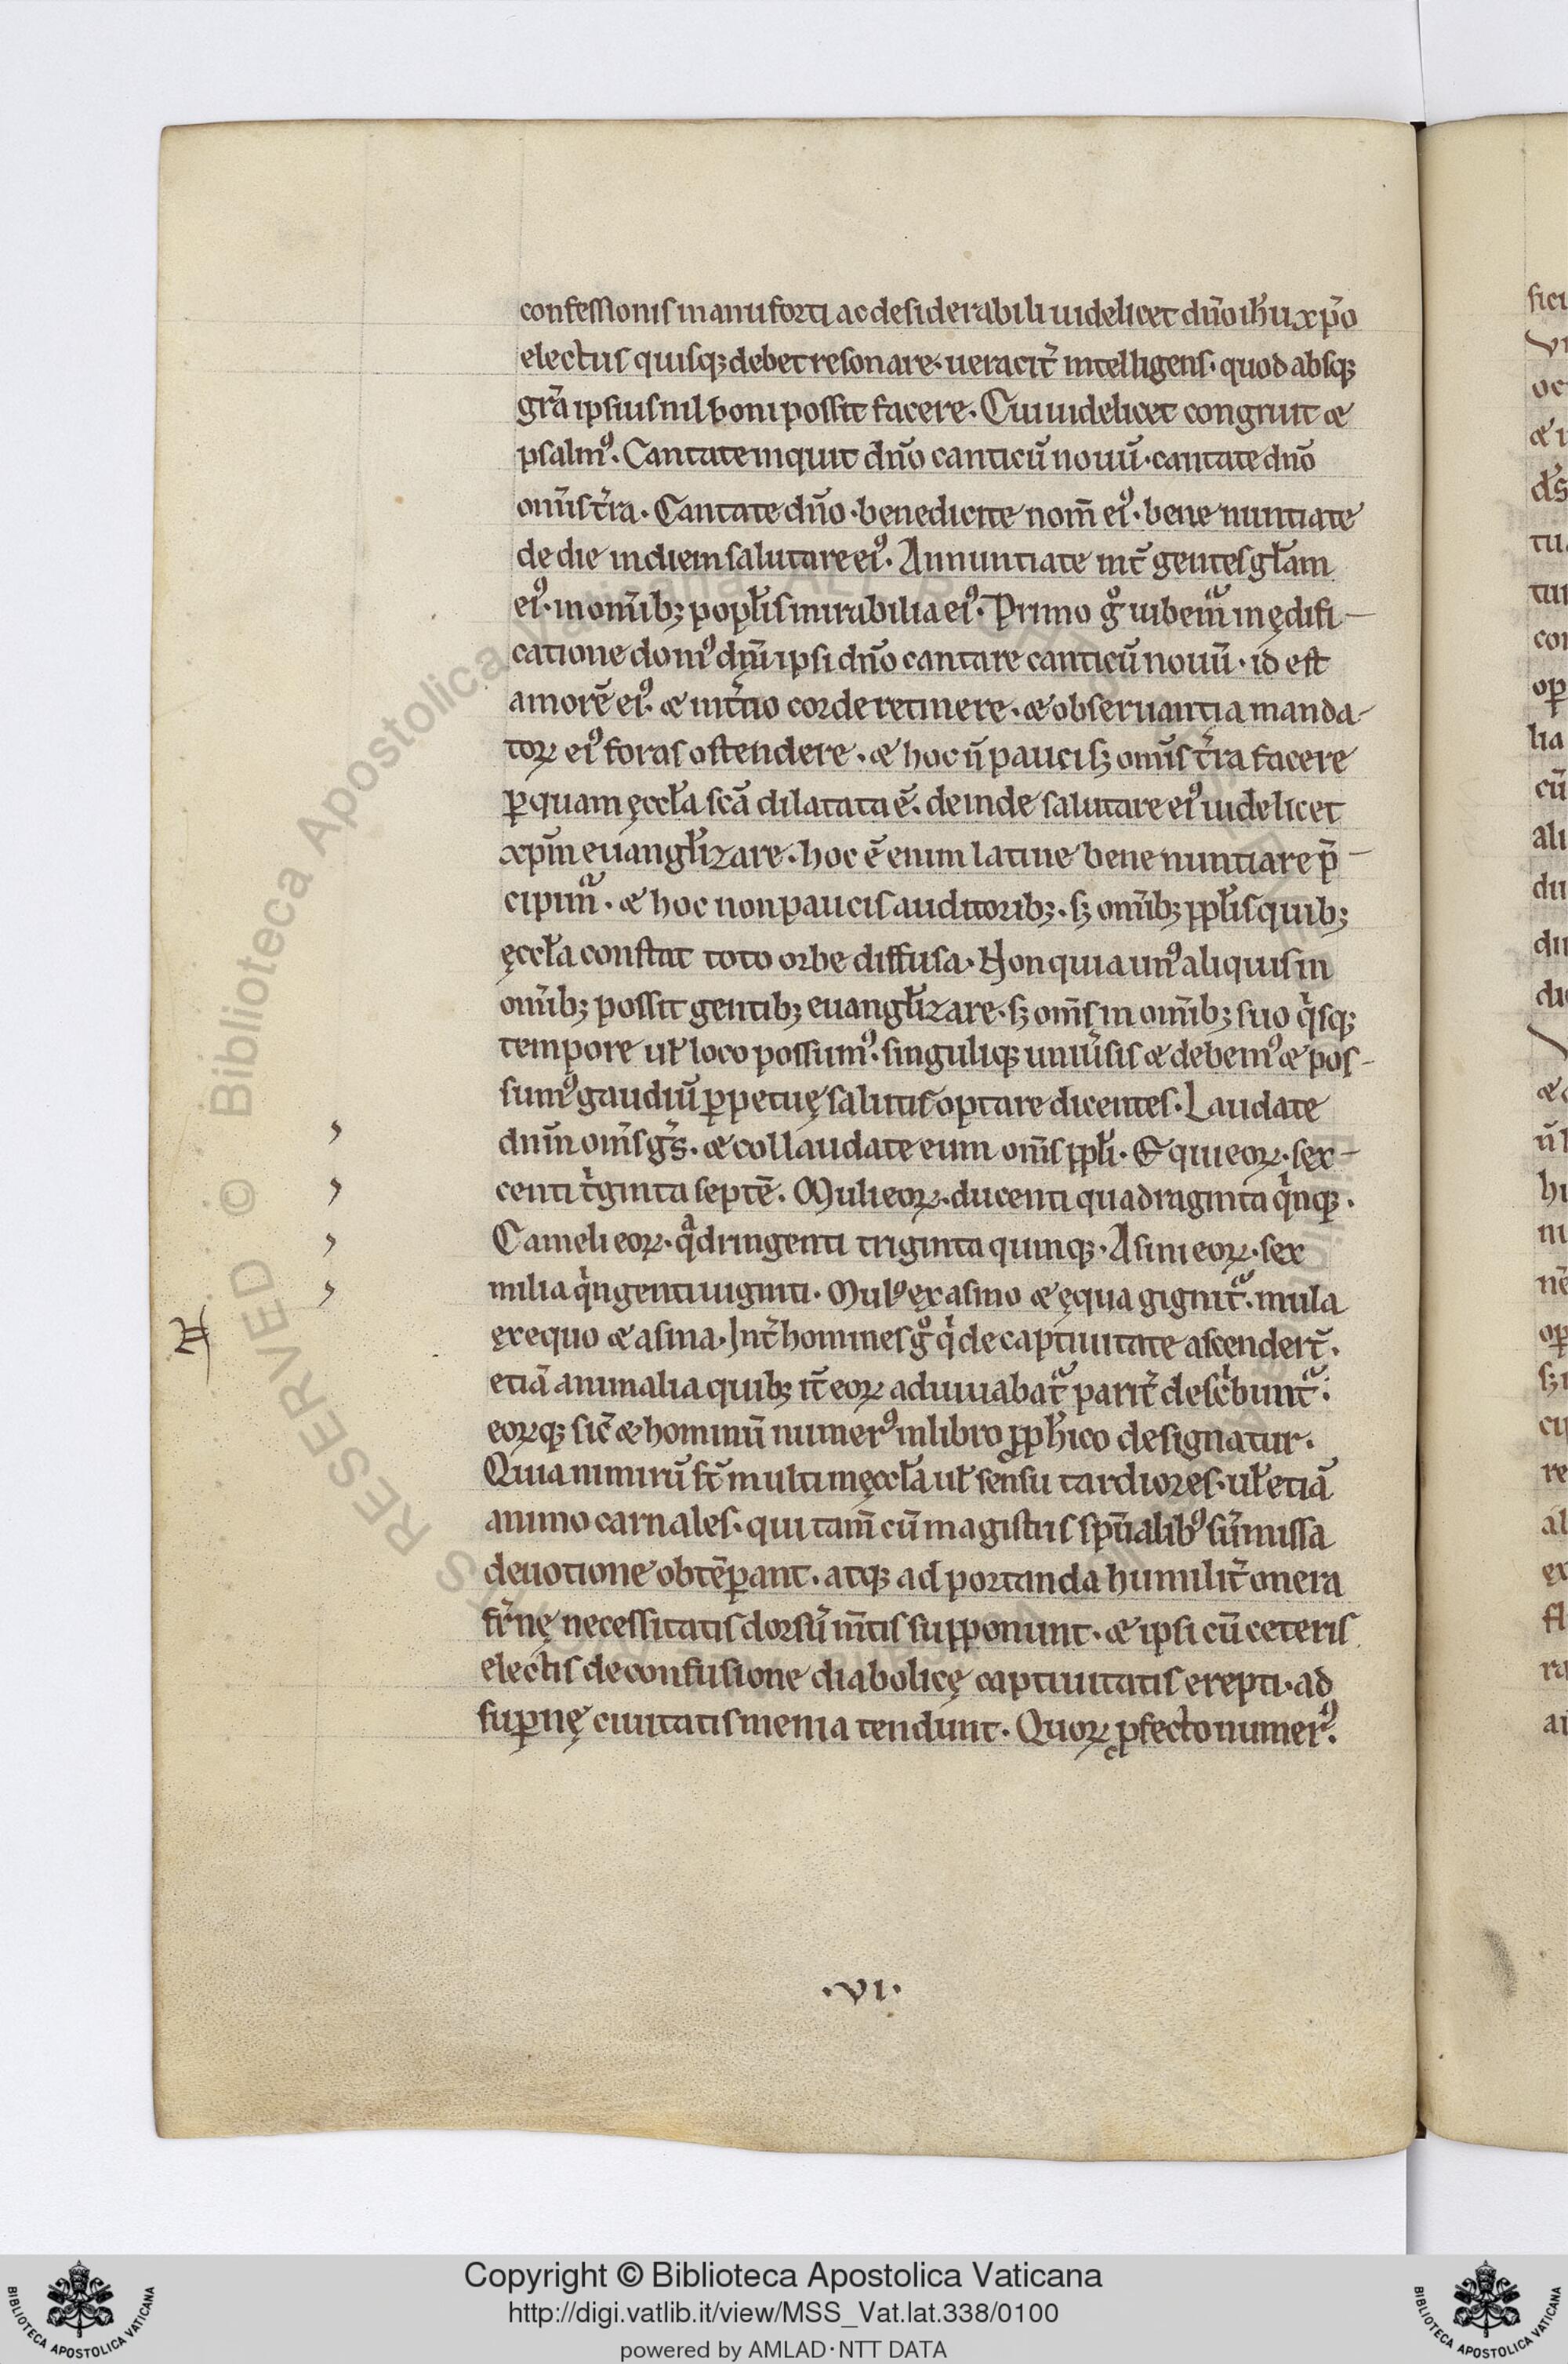 confessionis in manu forti ac desiderabili uidelicet dn̄o ih̄u xp̄o
electus quisq; debet resonare· ueracit̄ intelligens· quod absq;
gr̄a ipsius nil boni possit facere. Cui uidelicet congruit &
psalmꝰ. Cantate inquit dn̄o canticū nouū· cantate dn̄o
om̄is t̄ra. Cantate dn̄o· benedicite nom̄ eiꝰ· bene nuntiate
de die in diem salutare eiꝰ. Annuntiate int̄ gentes gl̄am
eiꝰ· in om̄ib; popl̄is mirabilia eiꝰ. Primo gͦ iubem̄ in ędifi-
catione domꝰ dn̄i ipsi dn̄o cantare canticū nouū· id est
amorē eiꝰ & int̄no corde retinere· & obseruantia manda-
toꝝ eiꝰ foras ostendere· & hoc n̄ pauci s; om̄is t̄ra facere
ꝑ quam ęccl̄a scā dilatata ē. deinde salutare eiꝰ uidelicet
xp̄m euangl̄izare· hoc ē enim latine bene nuntiare p̄-
cipim̄· & hoc non paucis auditorib;· s; om̄ib; ppl̄is quib;
ęccl̄a constat toto orbe diffusa. Non quia unꝰ aliquis in
om̄ib; possit gentib; euangl̄izare· s; om̄s in om̄ib; suo qͥsq;
tempore ul̄ loco possumꝰ· singuliq; uniu̓sis & debemꝰ & pos-
sumꝰ gaudiū ꝑpetuę salutis optare dicentes. Laudate
dn̄m om̄s gs̄· & collaudate eum om̄s ppl̄i. Equi eoꝝ· sex-
centi tͥginta septē. Muli eoꝝ· ducenti quadraginta qͥnq;.
Cameli eoꝝ· qͣdringenti triginta quinq;· Asini eoꝝ· sex
milia qͥngenti uiginti. Mulꝰ ex asino & ęqua gignit̄· mula
ex equo & asina. Int̄ homines gͦ qͥ de captiuitate ascendert̄·
etiā animalia quib; it̄ eoꝝ adiuuabat̄ parit̄ descͥbunt̄·
eoꝝq; sic̄ & hominū numerꝰ in libro ꝓph̄ico designatur.
Quia nimirū st̄ multi in ęccl̄a ul̄ sensu tardiores· ul̄ etiā
animo carnales· qui tam̄ cū magistris sp̄ualibꝰ sūmissa
deuotione obtēꝑant· atq; ad portanda humilit̄ onera
fr̄nę necessitatis dorsū m̄tis supponunt· & ipsi cū ceteris
electis de confusione diabolicę captiuitatis erepti· ad
suꝑnę ciuitatis menia tendunt. Quoꝝ ꝓfecto numerꝰ.
·VI·
Copyright © Biblioteca Apostolica Vaticana
http://digi.vatlib.it/view/MSS_Vat.lat.338/0100
powered by AMLAD·NTT DATA
BIBLIOTECA APOSTOLICA VATICANA
BIBLIOTECA APOSTOLICA VATICANA